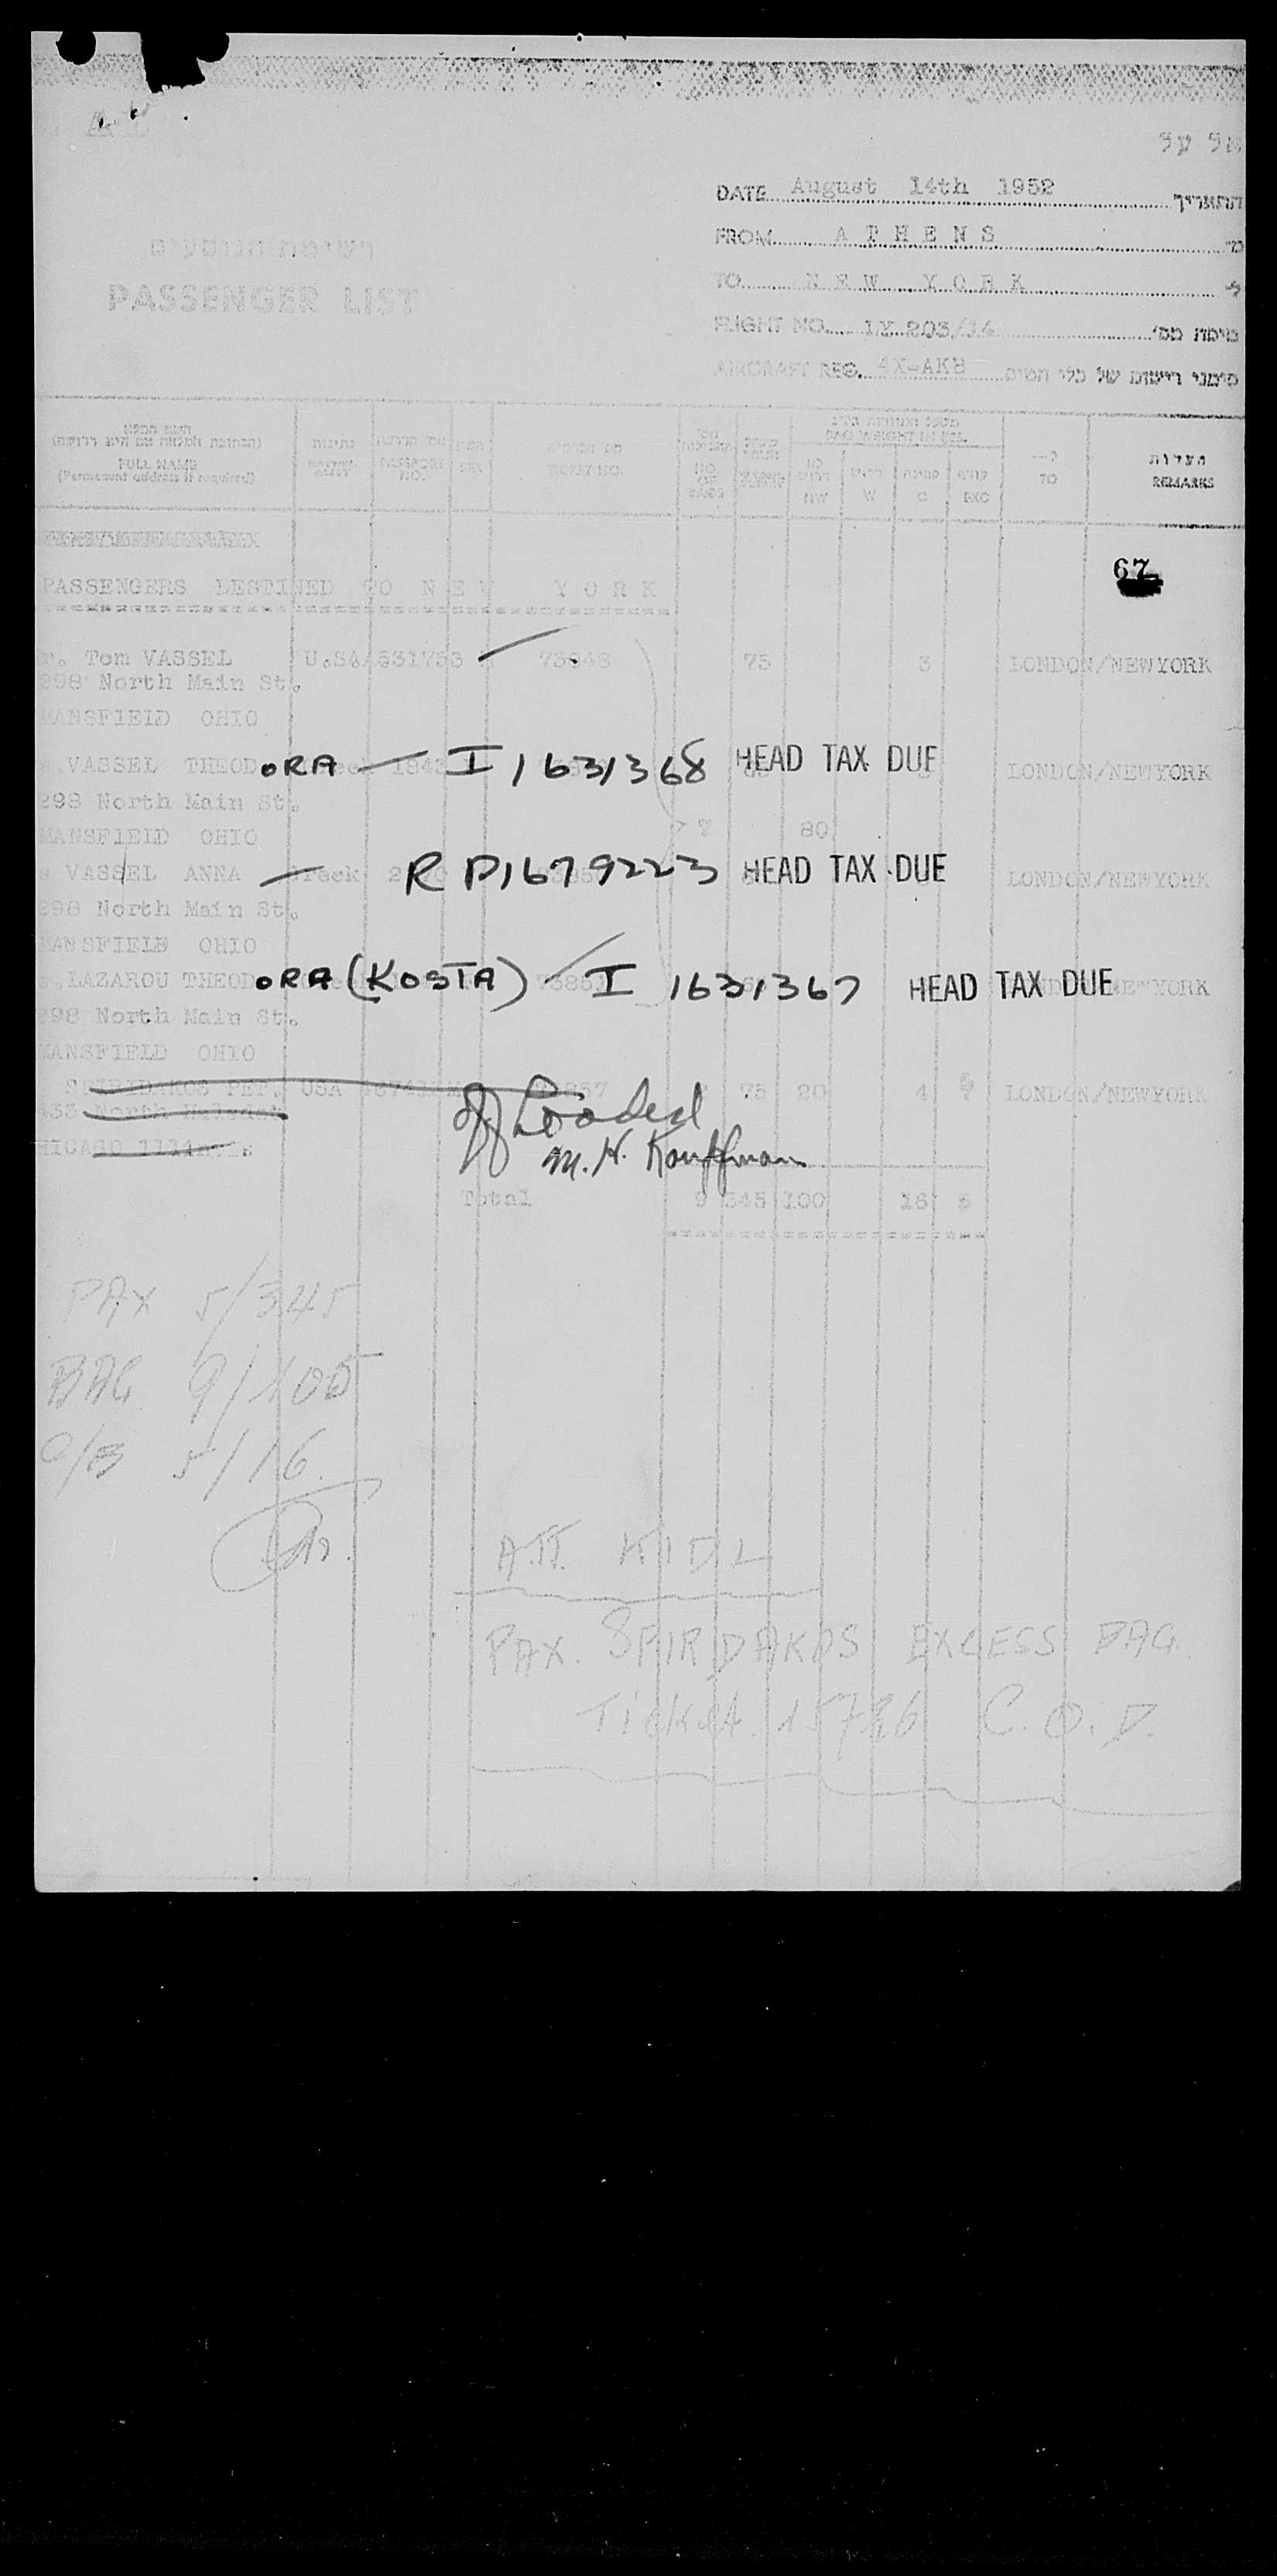 אל על
DATE August 14th 1952 התאריך
FROM ATHENS מ־
רשימת הנוסעים
TO NEW YORK ל־
PASSENGER LIST
FLIGHT NO. LY 203/14 טיסה מס׳
AIRCRAFT REG. 4X-AKB סימני רישום של כלי הטיס
FULL NAME
(Permanent address if required)
PASSPORT NO. SEX TICKET NO. NO. OF BAGS BAG WEIGHT IN
NW W C EXC TO REMARKS הערות
67
PASSENGERS DESTINED TO NEW YORK
Tom VASSEL U.SA 75 3 LONDON/NEWYORK
298 North Main St.
MANSFIELD OHIO
VASSEL THEODORA — I 1631368 HEAD TAX DUE LONDON/NEWYORK
298 North Main St.
MANSFIELD OHIO 7 80
VASSEL ANNA — Greek R P1679223 HEAD TAX DUE LONDON/NEWYORK
298 North Main St.
MANSFIELD OHIO
LAZAROU THEODORA (KOSTA) I 1631367 HEAD TAX DUE LONDON/NEWYORK
298 North Main St.
MANSFIELD OHIO
USA 75 20 4 LONDON/NEWYORK
North
Off Loaded
CHICAGO
M. H. Kauffman
Total 9 345 100 16
PAX 5/345
BAG 9/100
O/B 5/16.
ATT. KIDL
PAX. SPIRIDAKOS EXCESS BAG.
Ticket C.O.D.